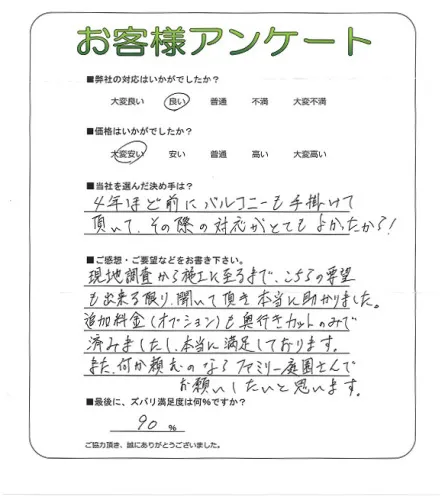 お客様アンケート
■弊社の対応はいかがでしたか?
大変良い 良い 普通 不満 大変不満
■価格はいかがでしたか?
大変安い 安い 普通 高い 大変高い
■当社を選んだ決め手は?
4年ほど前にバルコニーも手掛けて
頂いて、その際の対応がとてもよかったから!
■ご感想・ご要望などをお書き下さい。
現地調査から施工に至るまで、こちらの要望
も出来る限り、聞いて頂き本当に助かりました。
追加料金(オプション)も奥行きカットのみで
済みましたし、本当に満足しております。
また、何か頼むのなら ファミリー庭園さんで
お願いしたいと思います。
■最後に、ズバリ満足度は何%ですか?
90 %
ご協力頂き、誠にありがとうございました。